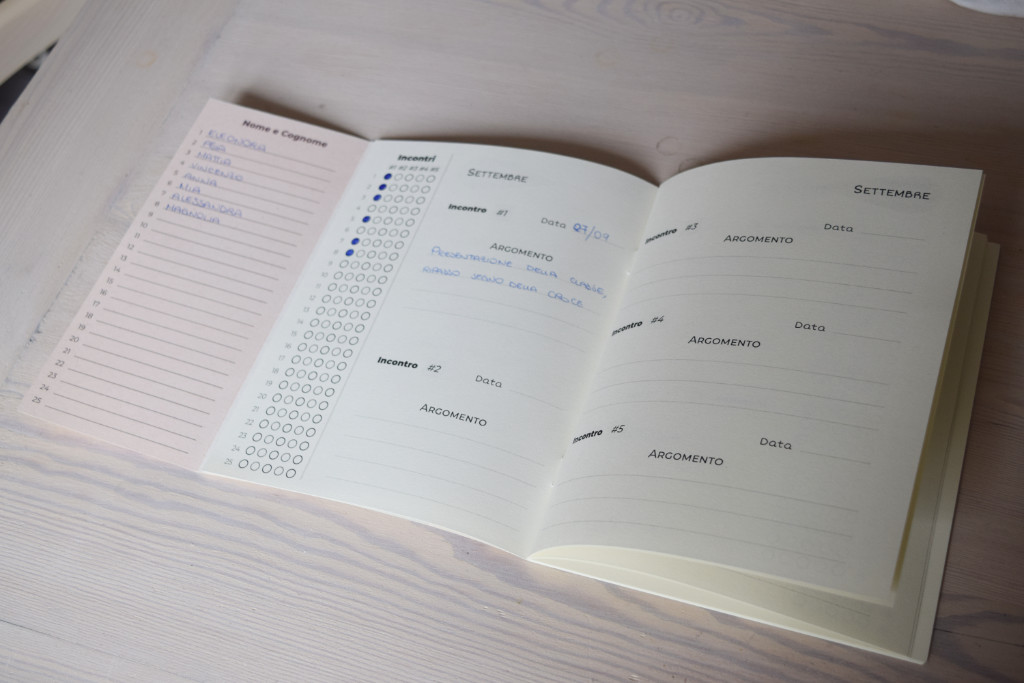 Nome e Cognome
1 ELEONORA
2 PIA
3 MATTIA
4 VINCENZO
5 ANNA
6 MIA
7 ALESSANDRA
8 MAGNOLIA
9
10
11
12
13
14
15
16
17
18
19
20
21
22
23
24
25
Incontri
#1 #2 #3 #4 #5
1
2
3
4
5
6
7
8
9
10
11
12
13
14
15
16
17
18
19
20
21
22
23
24
25
SETTEMBRE
Incontro #1 Data 27/09
ARGOMENTO
PRESENTAZIONE DELLA CLASSE,
RIPASSO SEGNO DELLA CROCE
Incontro #2 Data
ARGOMENTO
SETTEMBRE
Incontro #3 Data
ARGOMENTO
Incontro #4 Data
ARGOMENTO
Incontro #5 Data
ARGOMENTO